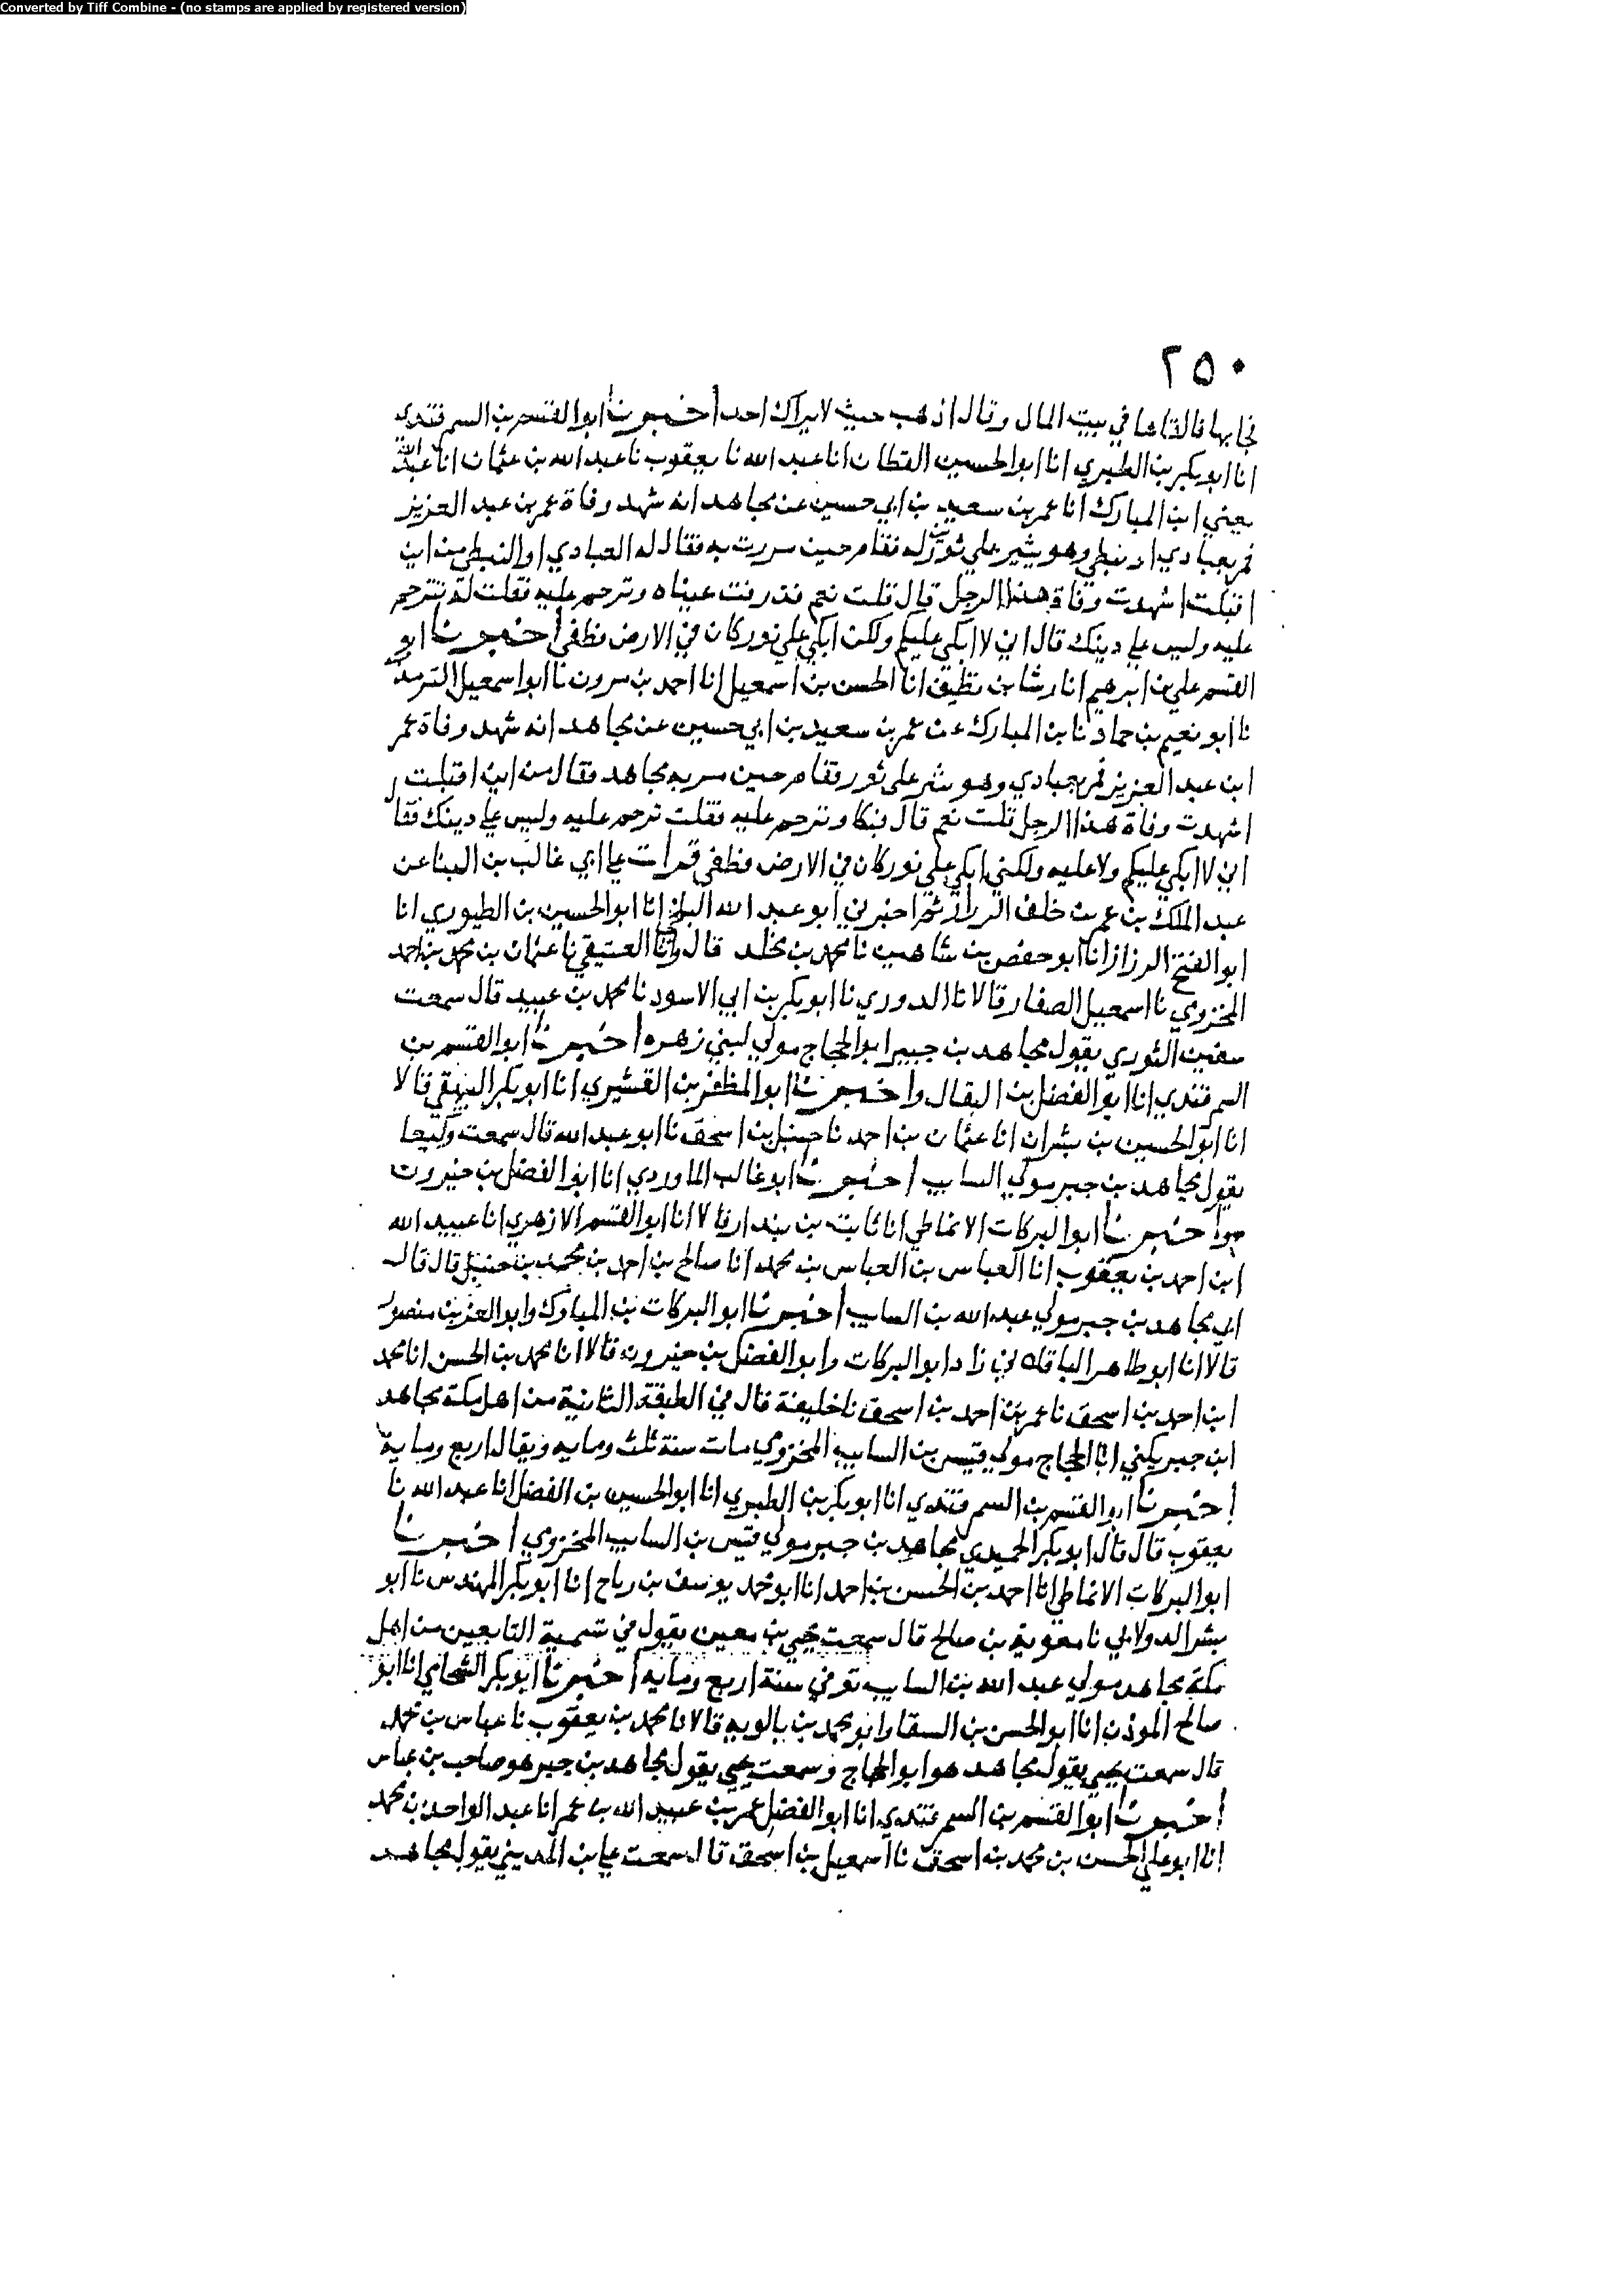 Converted by Tiff Combine - (no stamps are applied by registered version)
٢٥٠
فجا بها فالقاها في بيت المال وقال اذهب حيث لا يراك احد اخبرنا ابو القسم بن السمرقندي
انا ابو بكر بن الطبري انا ابو الحسين القطان انا عبد الله نا يعقوب نا عبد الله بن عثمان انا عبد الله
يعني ابن المبارك انا عمر بن سعيد بن ابي حسين عن مجاهد انه شهد وفاة عمر بن عبد العزيز
فمر بعبادي او نبطي وهو يثير علي ثورين له فقام حين مررت به فقال له العبادي او النبطي من اين
اقبلت اشهدت وفاة هذا الرجل قال قلت نعم فذرفت عيناه وترحم عليه فقلت له تترحم
عليه وليس علي دينك قال اني لا ابكي عليكم ولكن ابكي علي نور كان في الارض فطفي اخبرنا ابو
القسم علي بن ابرهيم انا رشا بن نظيف انا الحسن بن اسمعيل انا احمد بن مرون نا ابو اسمعيل الترمذي
نا ابو نعيم بن حماد نا بن المبارك عن عمر بن سعيد بن ابي حسين عن مجاهد انه شهد وفاة عمر
ابن عبد العزيز فمر بعبادي وهو يثير على ثور فقام حين مر به مجاهد فقال من اين اقبلت
اشهدت وفاة هذا الرجل قلت نعم قال فبكا وترحم عليه فقلت ترحم عليه وليس علي دينك فقال
اني لا ابكي عليكم ولا عليه ولكني ابكي علي نور كان في الارض فطفي قرات علي ابي غالب بن البنا عن
عبد الملك بن عمر بن خلف الرزاز ثم اخبرني ابو عبد الله البلخي انا ابو الحسين بن الطيوري انا
ابو الفتح الرزاز انا ابو حفص بن شاهين نا محمد بن مخلد قال وانا العتيقي نا عثمان بن محمد بن احمد
المخزومي نا اسمعيل الصفار قالا نا الدوري نا ابو بكر بن ابي الاسود نا محمد بن عبيد قال سمعت
سفين الثوري يقول مجاهد بن جبير ابو الحجاج مولي لبني زهره اخبرنا ابو القسم بن
السمرقندي انا ابو الفضل بن البقال واخبرنا ابو المظفر بن القشيري انا ابو بكر البيهقي قالا
انا ابو الحسين بن بشران انا عثمان بن احمد نا حنبل بن اسحق نا ابو عبد الله قال سمعت وكيعا
يقول مجاهد بن جبر مولي السايب اخبرنا ابو غالب الماوردي انا ابو الفضل بن خيرون
ح واخبرنا ابو البركات الانماطي انا ثابت بن بندار قالا انا ابو القسم الازهري انا عبيد الله
ابن احمد بن يعقوب انا العباس بن العباس بن محمد انا صالح بن احمد بن محمد بن حنبل قال قال
ابي مجاهد بن جبر مولي عبد الله بن السايب اخبرنا ابو البركات بن المبارك وابو العز بن منصور
قالا انا ابو طاهر الباقلاني زاد ابو البركات وابو الفضل بن خيرون قالا انا محمد بن الحسن انا محمد
ابن احمد بن اسحق نا عمر بن احمد بن اسحق نا خليفة قال في الطبقة الثانية من اهل مكة مجاهد
ابن جبر يكني ابا الحجاج مولي قيس بن السايب المخزومي مات سنة ثلث ومايه ويقال اربع ومايه
اخبرنا ابو القسم بن السمرقندي انا ابو بكر بن الطبري انا ابو الحسين بن الفضل انا عبد الله نا
يعقوب قال قال ابو بكر الحميدي مجاهد بن جبر مولي قيس بن السايب المخزومي اخبرنا
ابو البركات الانماطي انا احمد بن الحسن بن احمد انا ابو محمد يوسف بن رباح انا ابو بكر المهندس نا ابو
بشر الدولابي نا معوية بن صالح قال سمعت يحيي بن معين يقول في تسمية التابعين من اهل
مكة مجاهد مولي عبد الله بن السايب توفي سنة اربع ومايه اخبرنا ابو بكر الشحامي انا ابو
صالح الموذن انا ابو الحسن بن السقا وابو محمد بن بالويه قالا نا محمد بن يعقوب نا عباس بن محمد
قال سمعت يحيي يقول مجاهد هو ابو الحجاج وسمعت يحيي يقول مجاهد بن جبر هو صاحب بن عباس
اخبرنا ابو القسم بن السمرقندي انا ابو الفضل عمر بن عبيد الله بن عمر انا عبد الواحد بن محمد
انا ابو علي الحسن بن محمد بن اسحق نا اسمعيل بن اسحق قال سمعت علي بن المديني يقول مجاهد